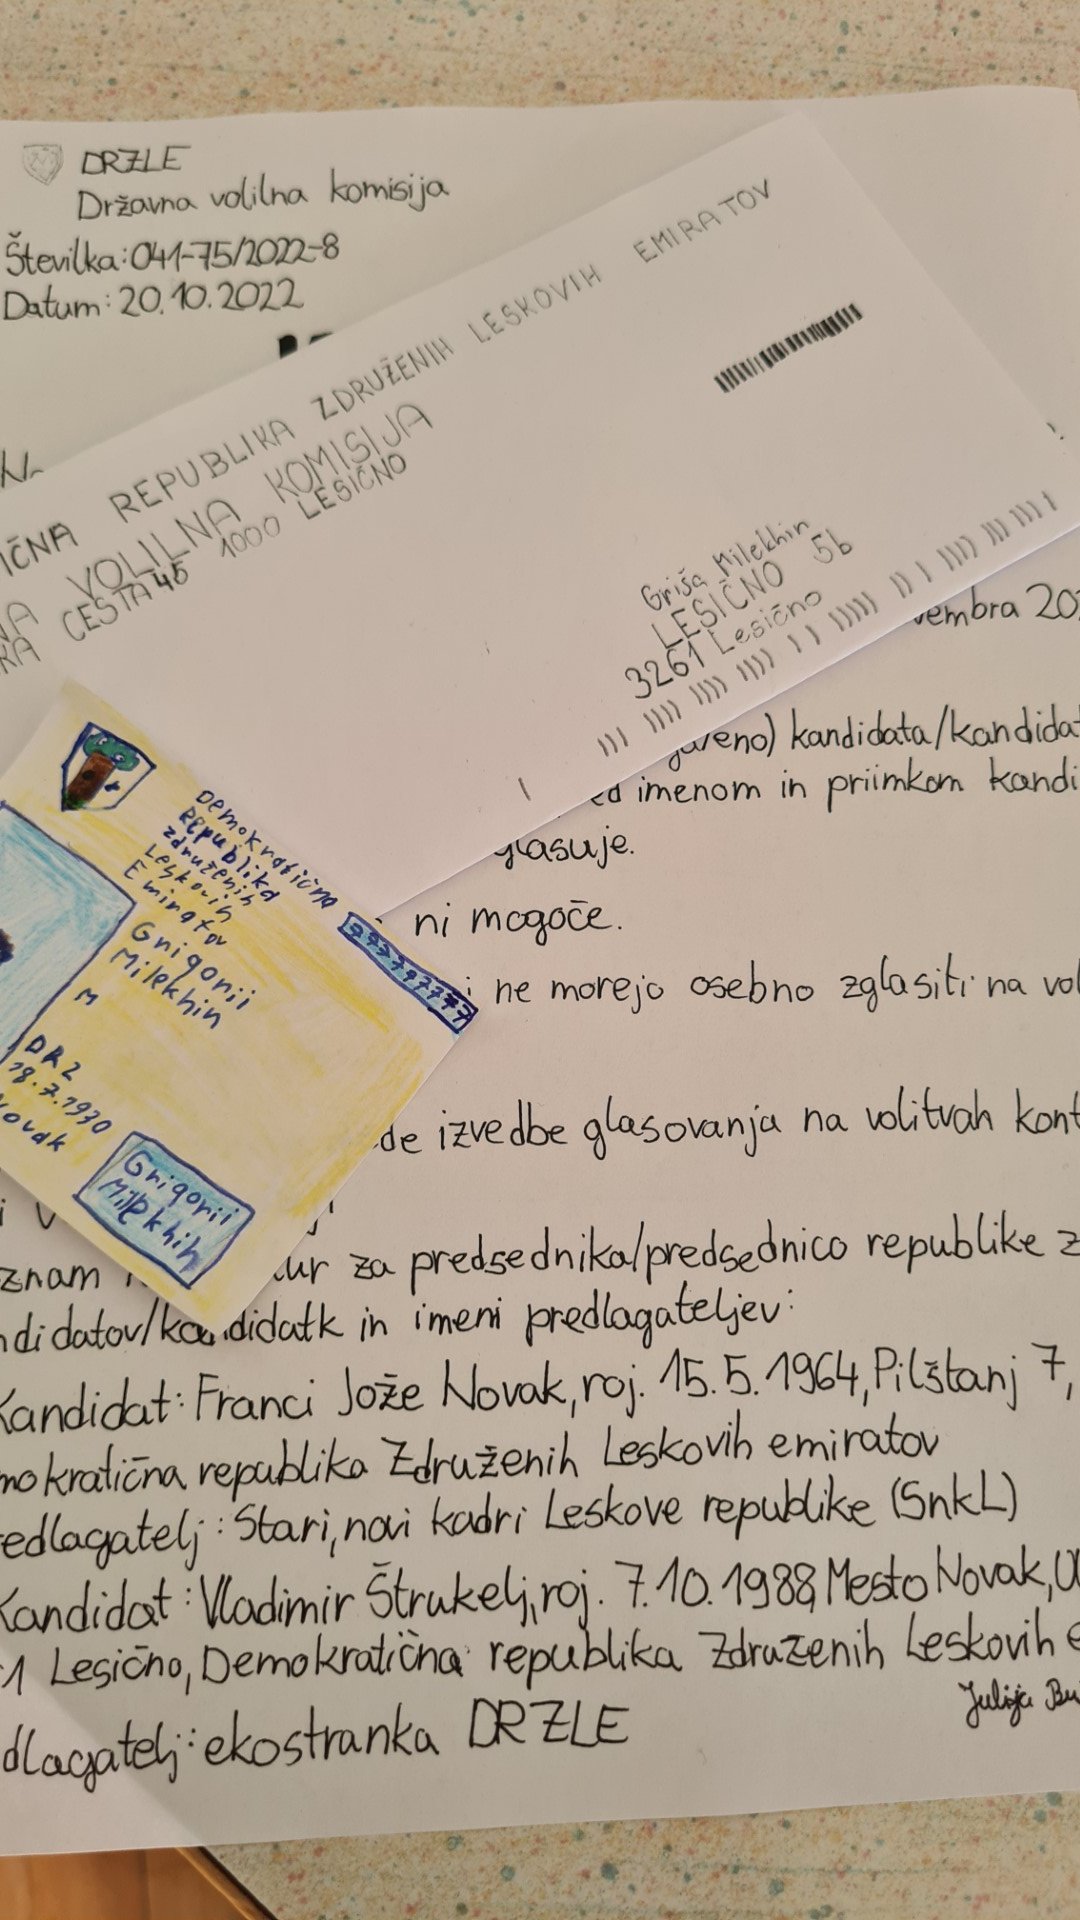 DRZLE
Državna volilna komisija
Številka: 041-75/2022-8
Datum: 20.10.2022
IČNA REPUBLIKA ZDRUŽENIH LESKOVIH EMIRATOV
NA VOLILNA KOMISIJA
KA CESTA 45 1000 LESIČNO
Griša Milekhin
LESIČNO 5b
3261 Lesično
vembra 20
eno) kandidata/kandidat
ed imenom in priimkom kandi
glasuje.
ni mogoče.
i ne morejo osebno zglasiti na vol
de izvedbe glasovanja na volitvah kont
Demokratična
Republika
združenih
Leskovih
Emiratov
Grigorii
Milekhin
M
DRZ
18.7.1930
ovak
Grigorii
Milekhin
znam
ur za predsednika/predsednico republike z
ndidatov/kandidatk in imeni predlagateljev:
Kandidat: Franci Jože Novak, roj. 15.5.1964, Pilštanj 7,
mokratična republika Združenih Leskovih emiratov
edlagatelj: Stari, novi kadri Leskove republike (SnkL)
Kandidat: Vladimir Štrukelj, roj. 7.10.1988, Mesto Novak, Ul
1 Lesično, Demokratična republika Združenih Leskovih e
Julija Bu
dlagatelj: ekostranka DRZLE